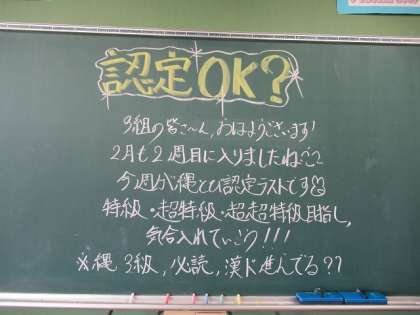 認定OK?
3組の皆さ〜ん,おはようございます!
2月も2週目に入りましたね
今週が縄とび認定ラストです
特級・超特級・超超特級目指し,
気合入れていこう!!!
※縄3級,必読,漢ド進んでる??